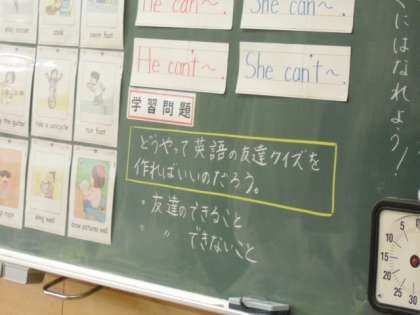 He can~.
She can~.
He can't~.
She can't~.
学習問題
どうやって英語の友達クイズを
作ればいいのだろう。
・友達のできること
・〃 できないこと
くにはなれよう!
cook
swim fast
ride a unicycle
run fast
sing well
draw pictures well
0
5
10
15
30